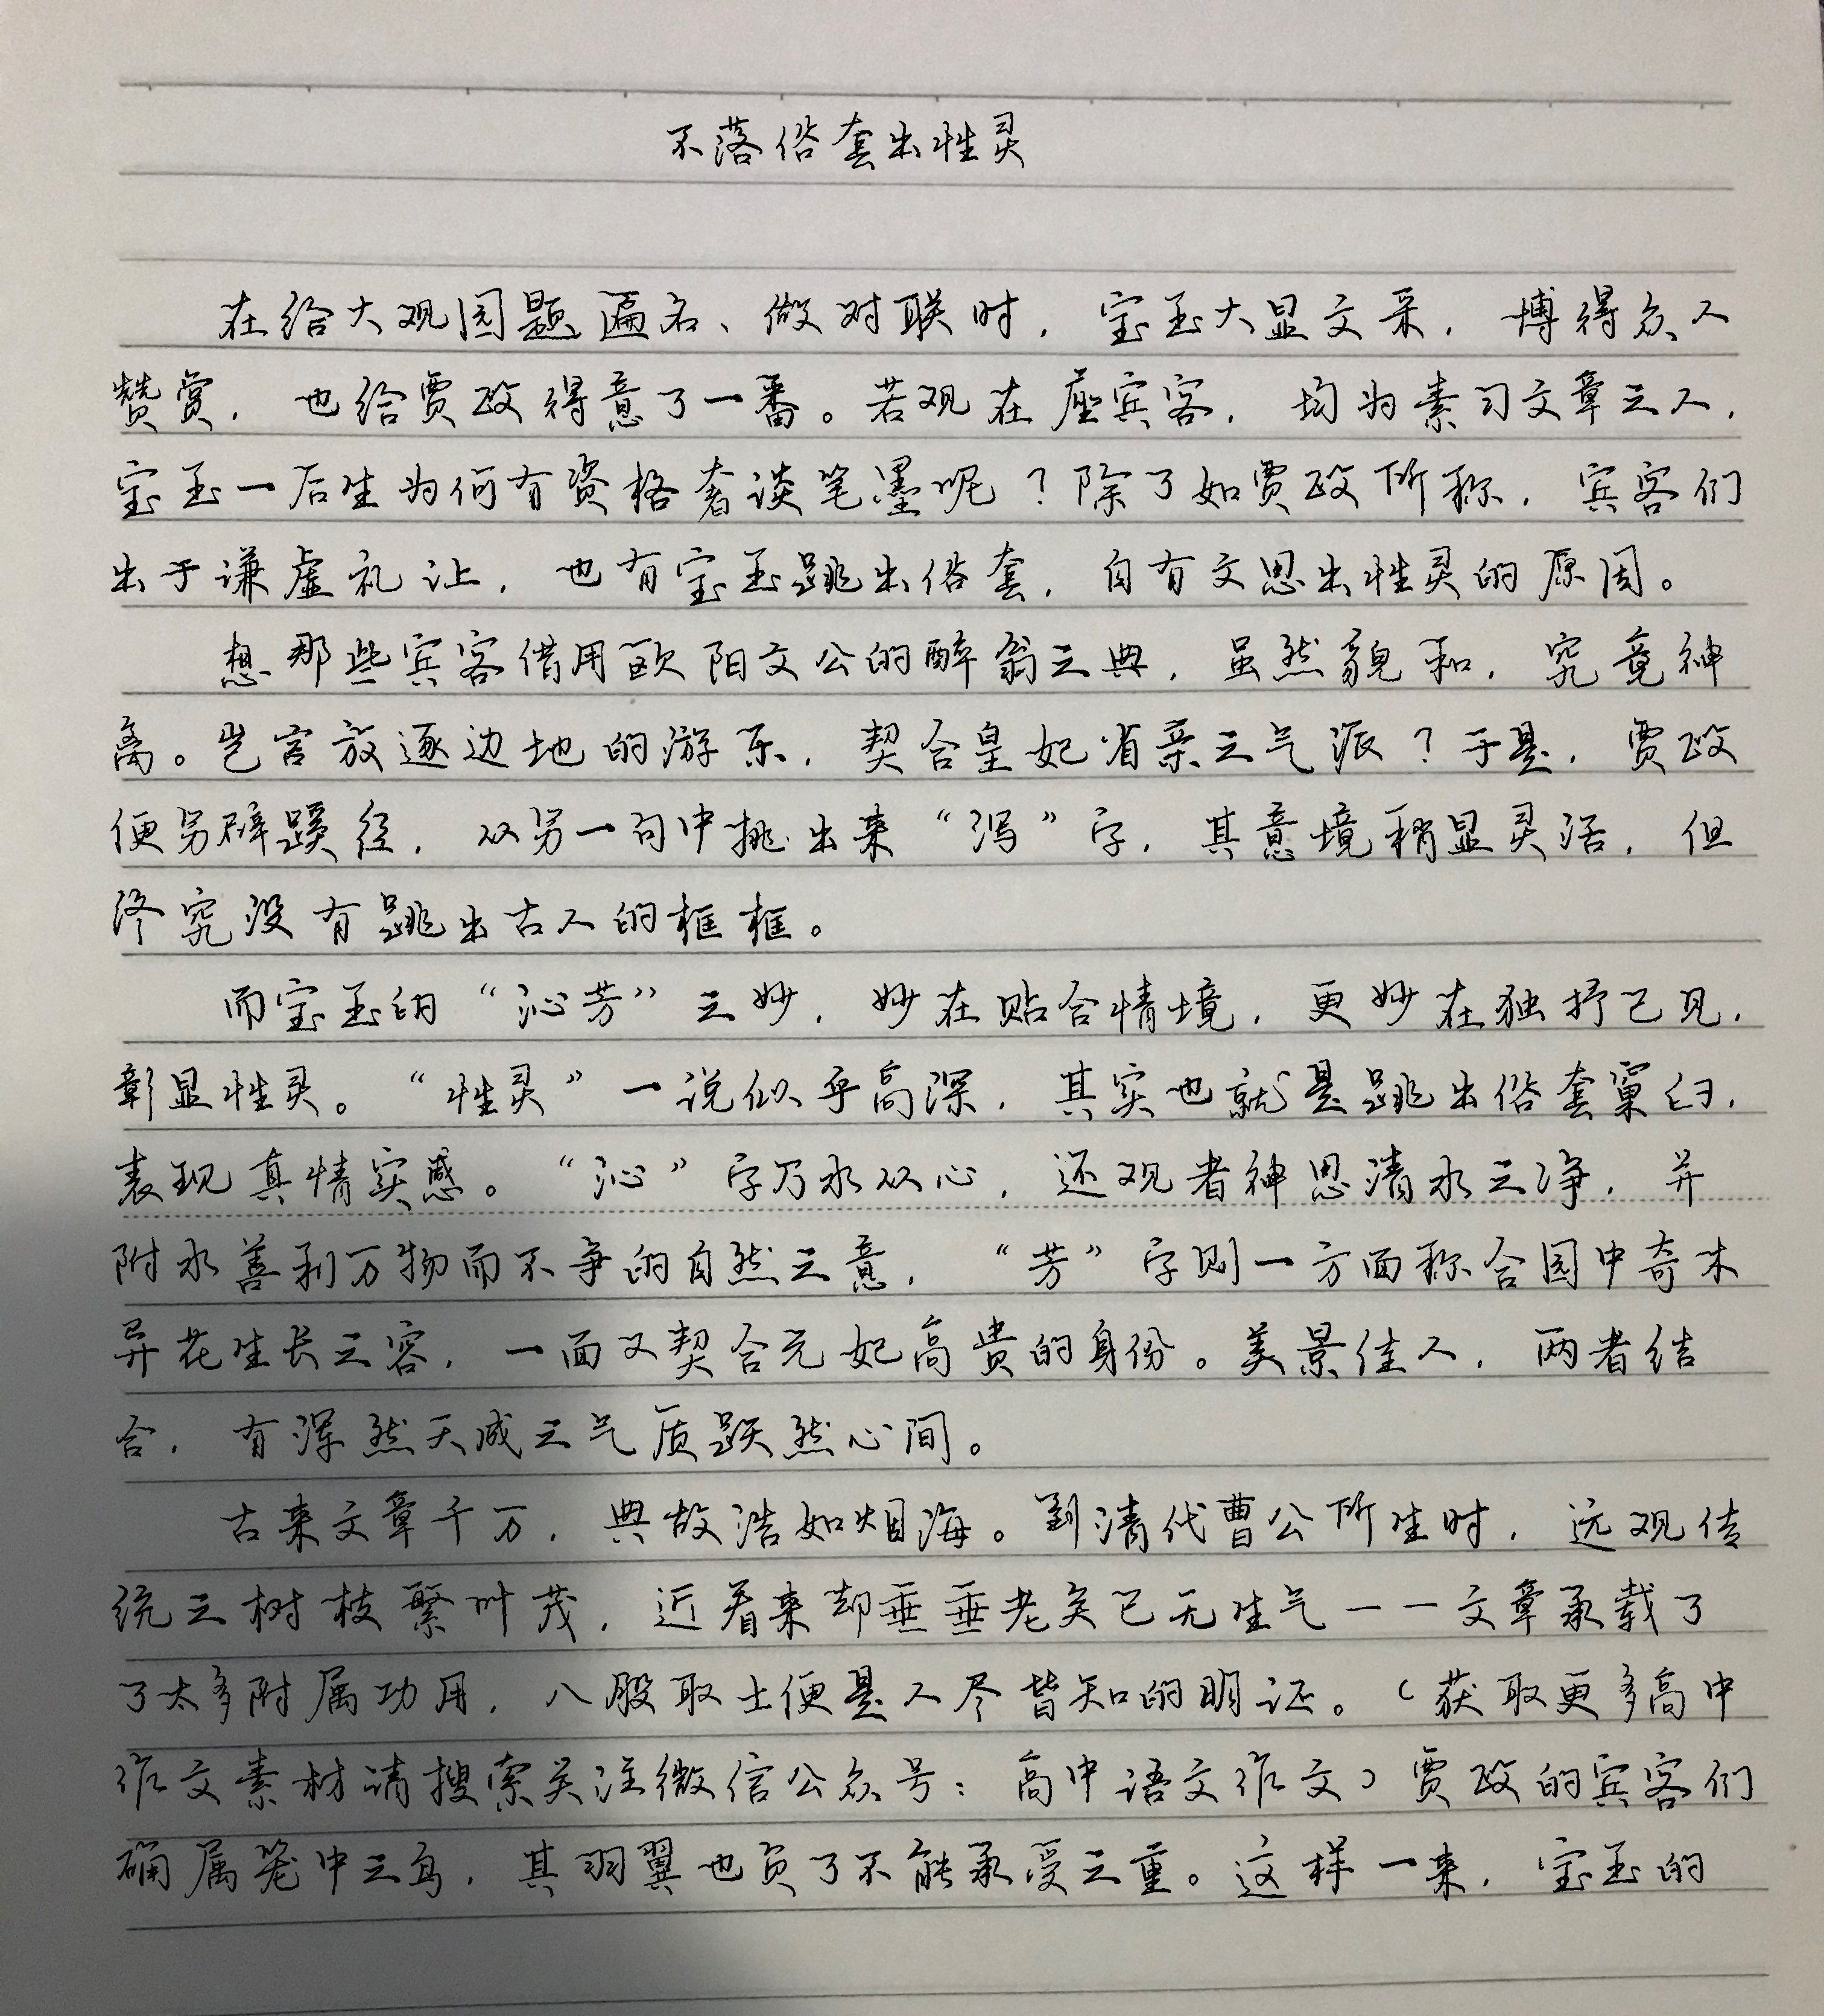 不落俗套出性灵
在给大观园题匾名、做对联时，宝玉大显文采，博得众人
赞赏，也给贾政得意了一番。若观在座宾客，均为素习文章之人，
宝玉一后生为何有资格奢谈笔墨呢？除了如贾政所称，宾客们
出于谦虚礼让，也有宝玉跳出俗套，自有文思出性灵的原因。
想那些宾客借用欧阳文公的醉翁之典，虽然貌和，究竟神
离。岂言放逐边地的游乐，契合皇妃省亲之气派？于是，贾政
便另辟蹊径，从另一句中挑出来“泻”字，其意境稍显灵活，但
终究没有跳出古人的框框。
而宝玉的“沁芳”之妙，妙在贴合情境，更妙在独抒己见，
彰显性灵。“性灵”一说似乎高深，其实也就是跳出俗套窠臼，
表现真情实感。“沁”字乃水从心，还观者神思清水之净，并
附水善利万物而不争的自然之意，“芳”字则一方面称合园中奇木
异花生长之容，一面又契合元妃高贵的身份。美景佳人，两者结
合，有浑然天成之气质跃然心间。
古来文章千万，典故浩如烟海。到清代曹公所生时，远观传
统之树枝繁叶茂，近看来却垂垂老矣已无生气——文章承载了
了太多附属功用，八股取士便是人尽皆知的明证。（获取更多高中
作文素材请搜索关注微信公众号：高中语文作文）贾政的宾客们
确属笼中之鸟，其羽翼也负了不能承受之重。这样一来，宝玉的